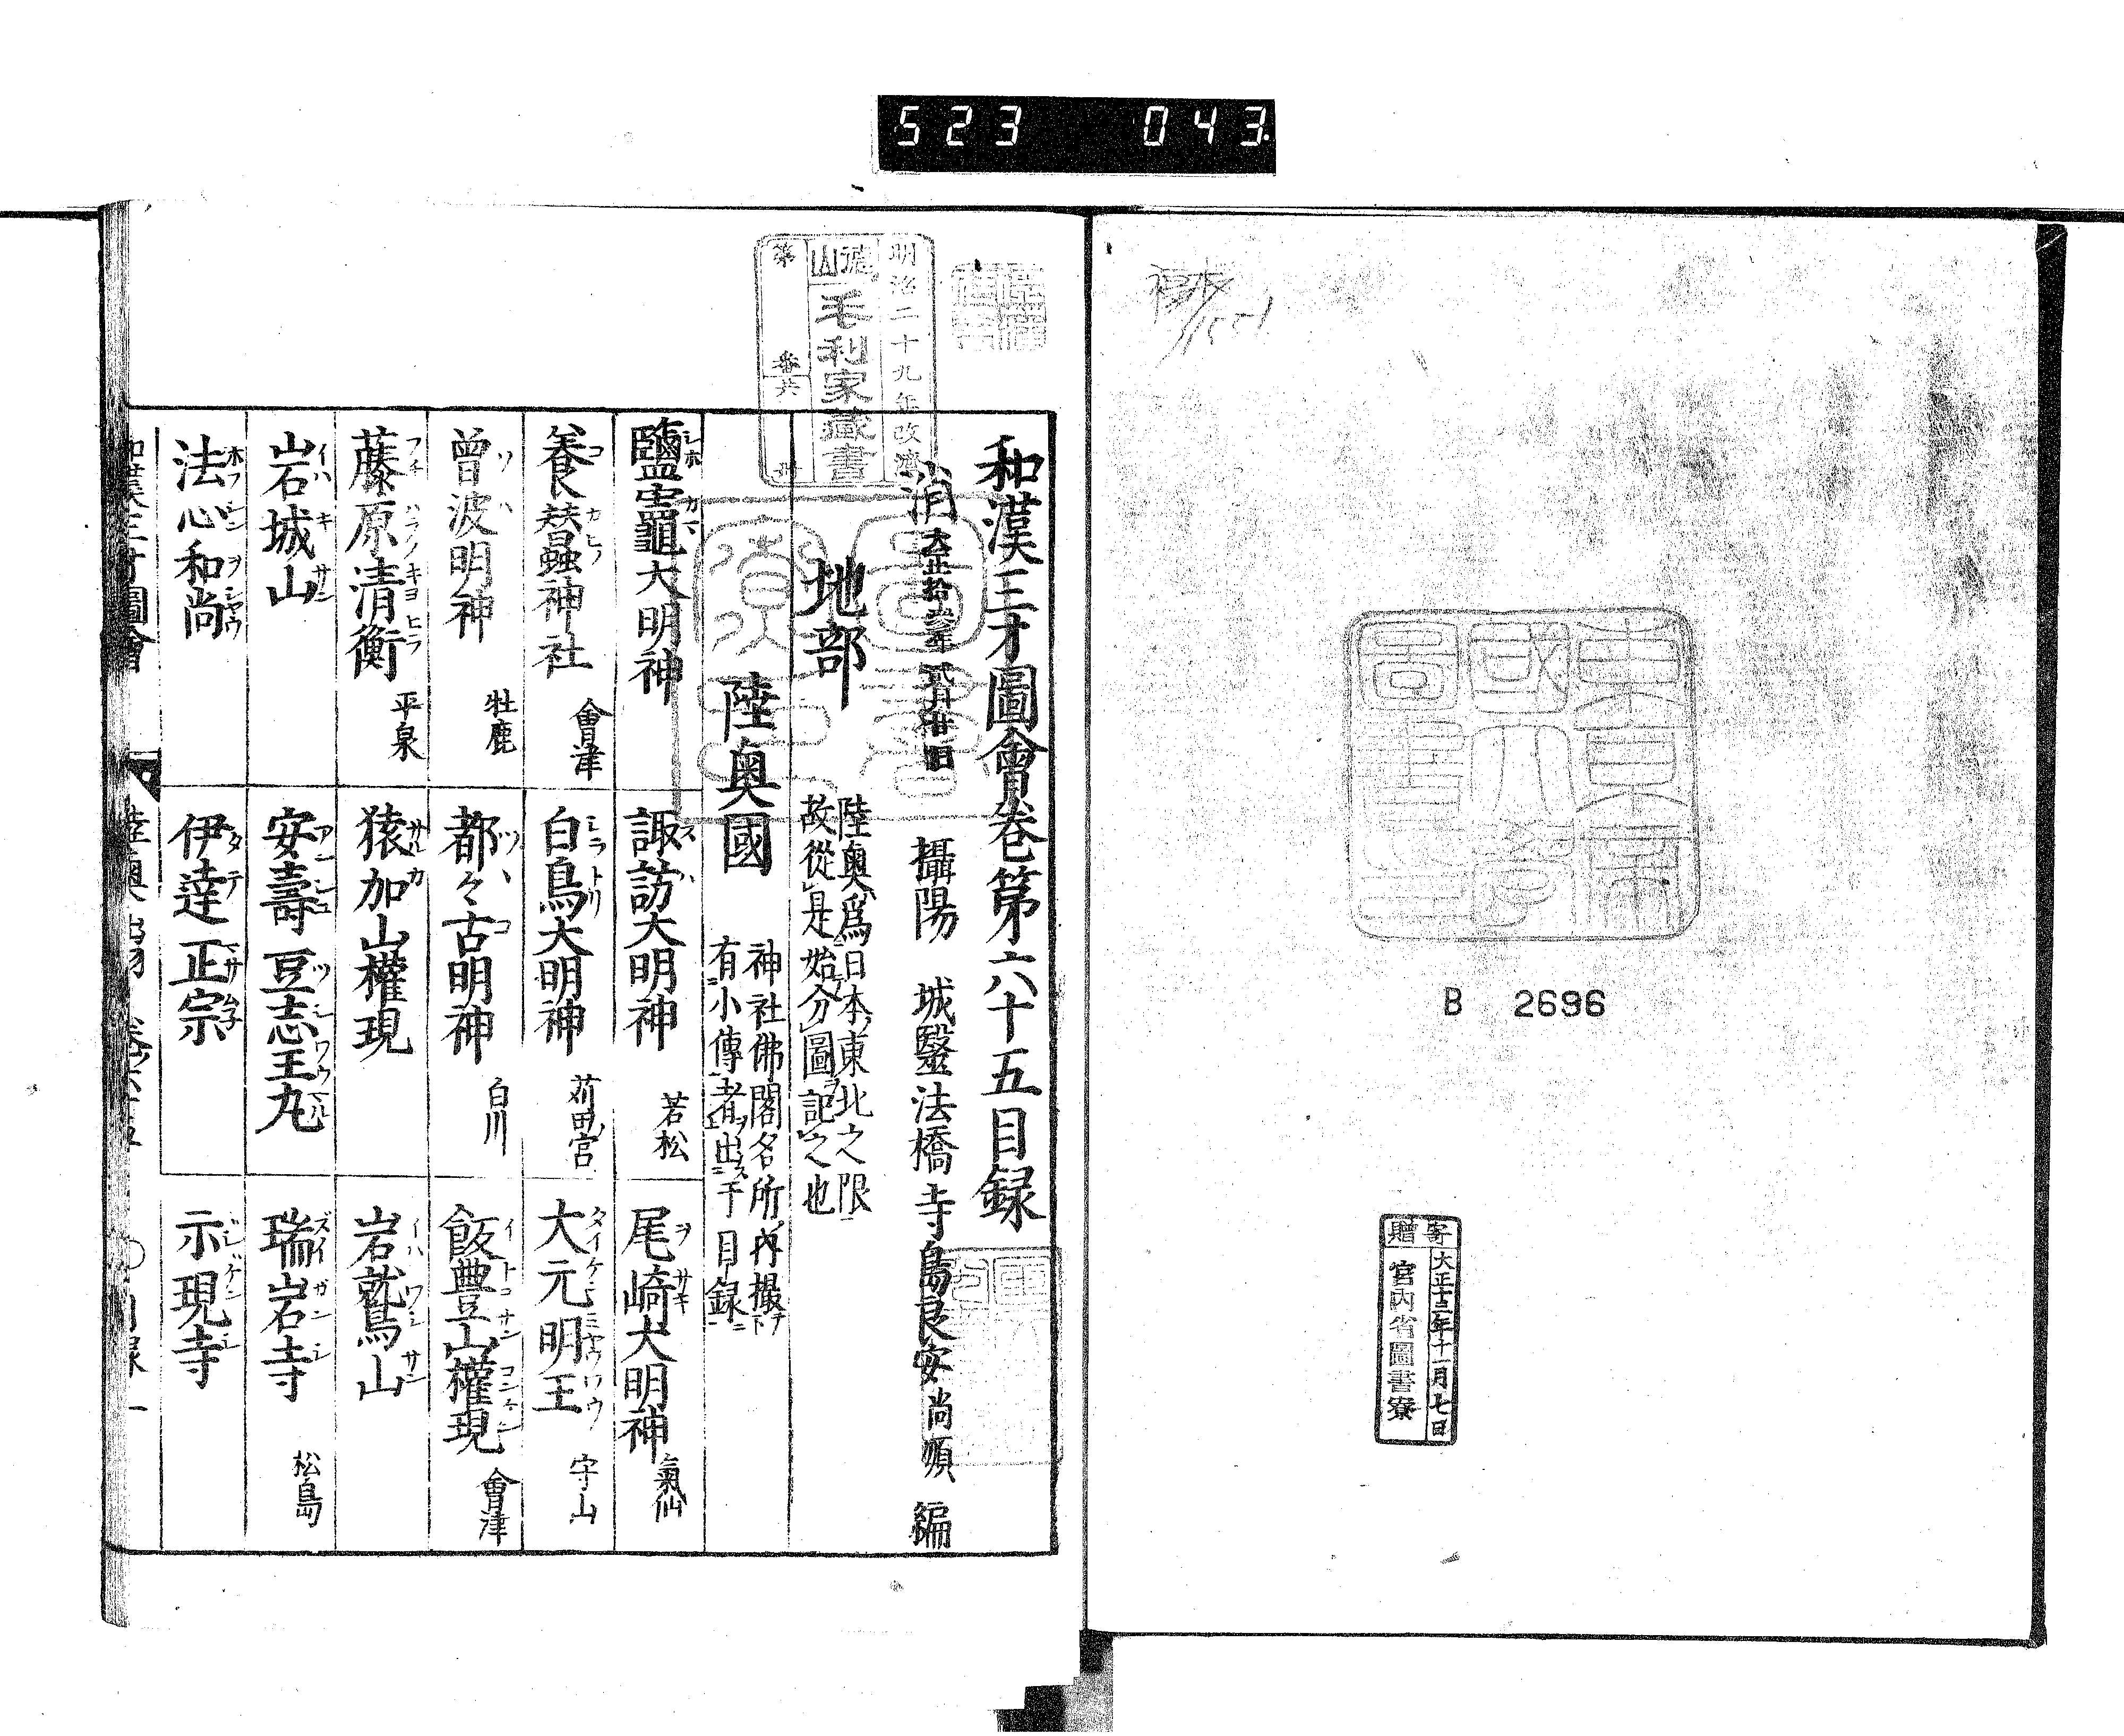 523 043
複本
11551
東京帝國大學圖書印
B 2696
寄贈
大正十三年十一月七日
宮内省圖書寮
明治二十九年改濟
德山
毛利家藏書
第
番共
冊
和漢三才圖會卷第六十五目録
消
大正拾參年貳月廿日
攝陽 城醫法橋寺島良安尚順 編
地部
陸奥爲日本東北之限
故從是始分圖記之也
陸奥國
神社佛閣名所内撮
有小傳者出于目録
鹽竈大明神
諏訪大明神 若松
尾崎大明神 氣仙
養蠶神社 會津
白鳥大明神 苅田宮
大元明王 守山
曽波明神 牡鹿
都々古明神 白川
飯豊山權現 會津
藤原清衡 平泉
猿加山權現
岩鷲山
岩城山
安壽 豆志王丸
瑞岩寺 松島
法心和尚
伊達正宗
示現寺
和漢三才圖會